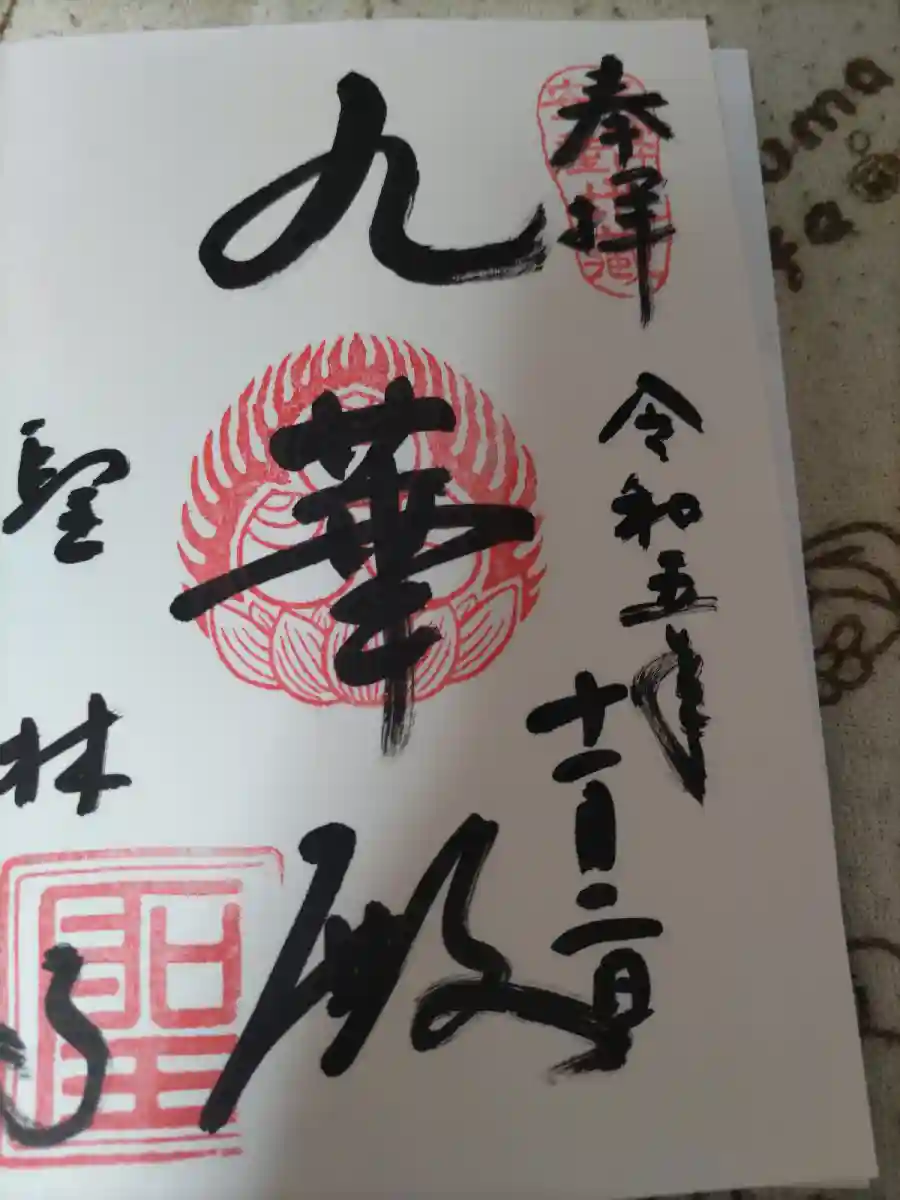 奉拝
令和五年
十一月二日
九華殿
聖林寺
聖
uma